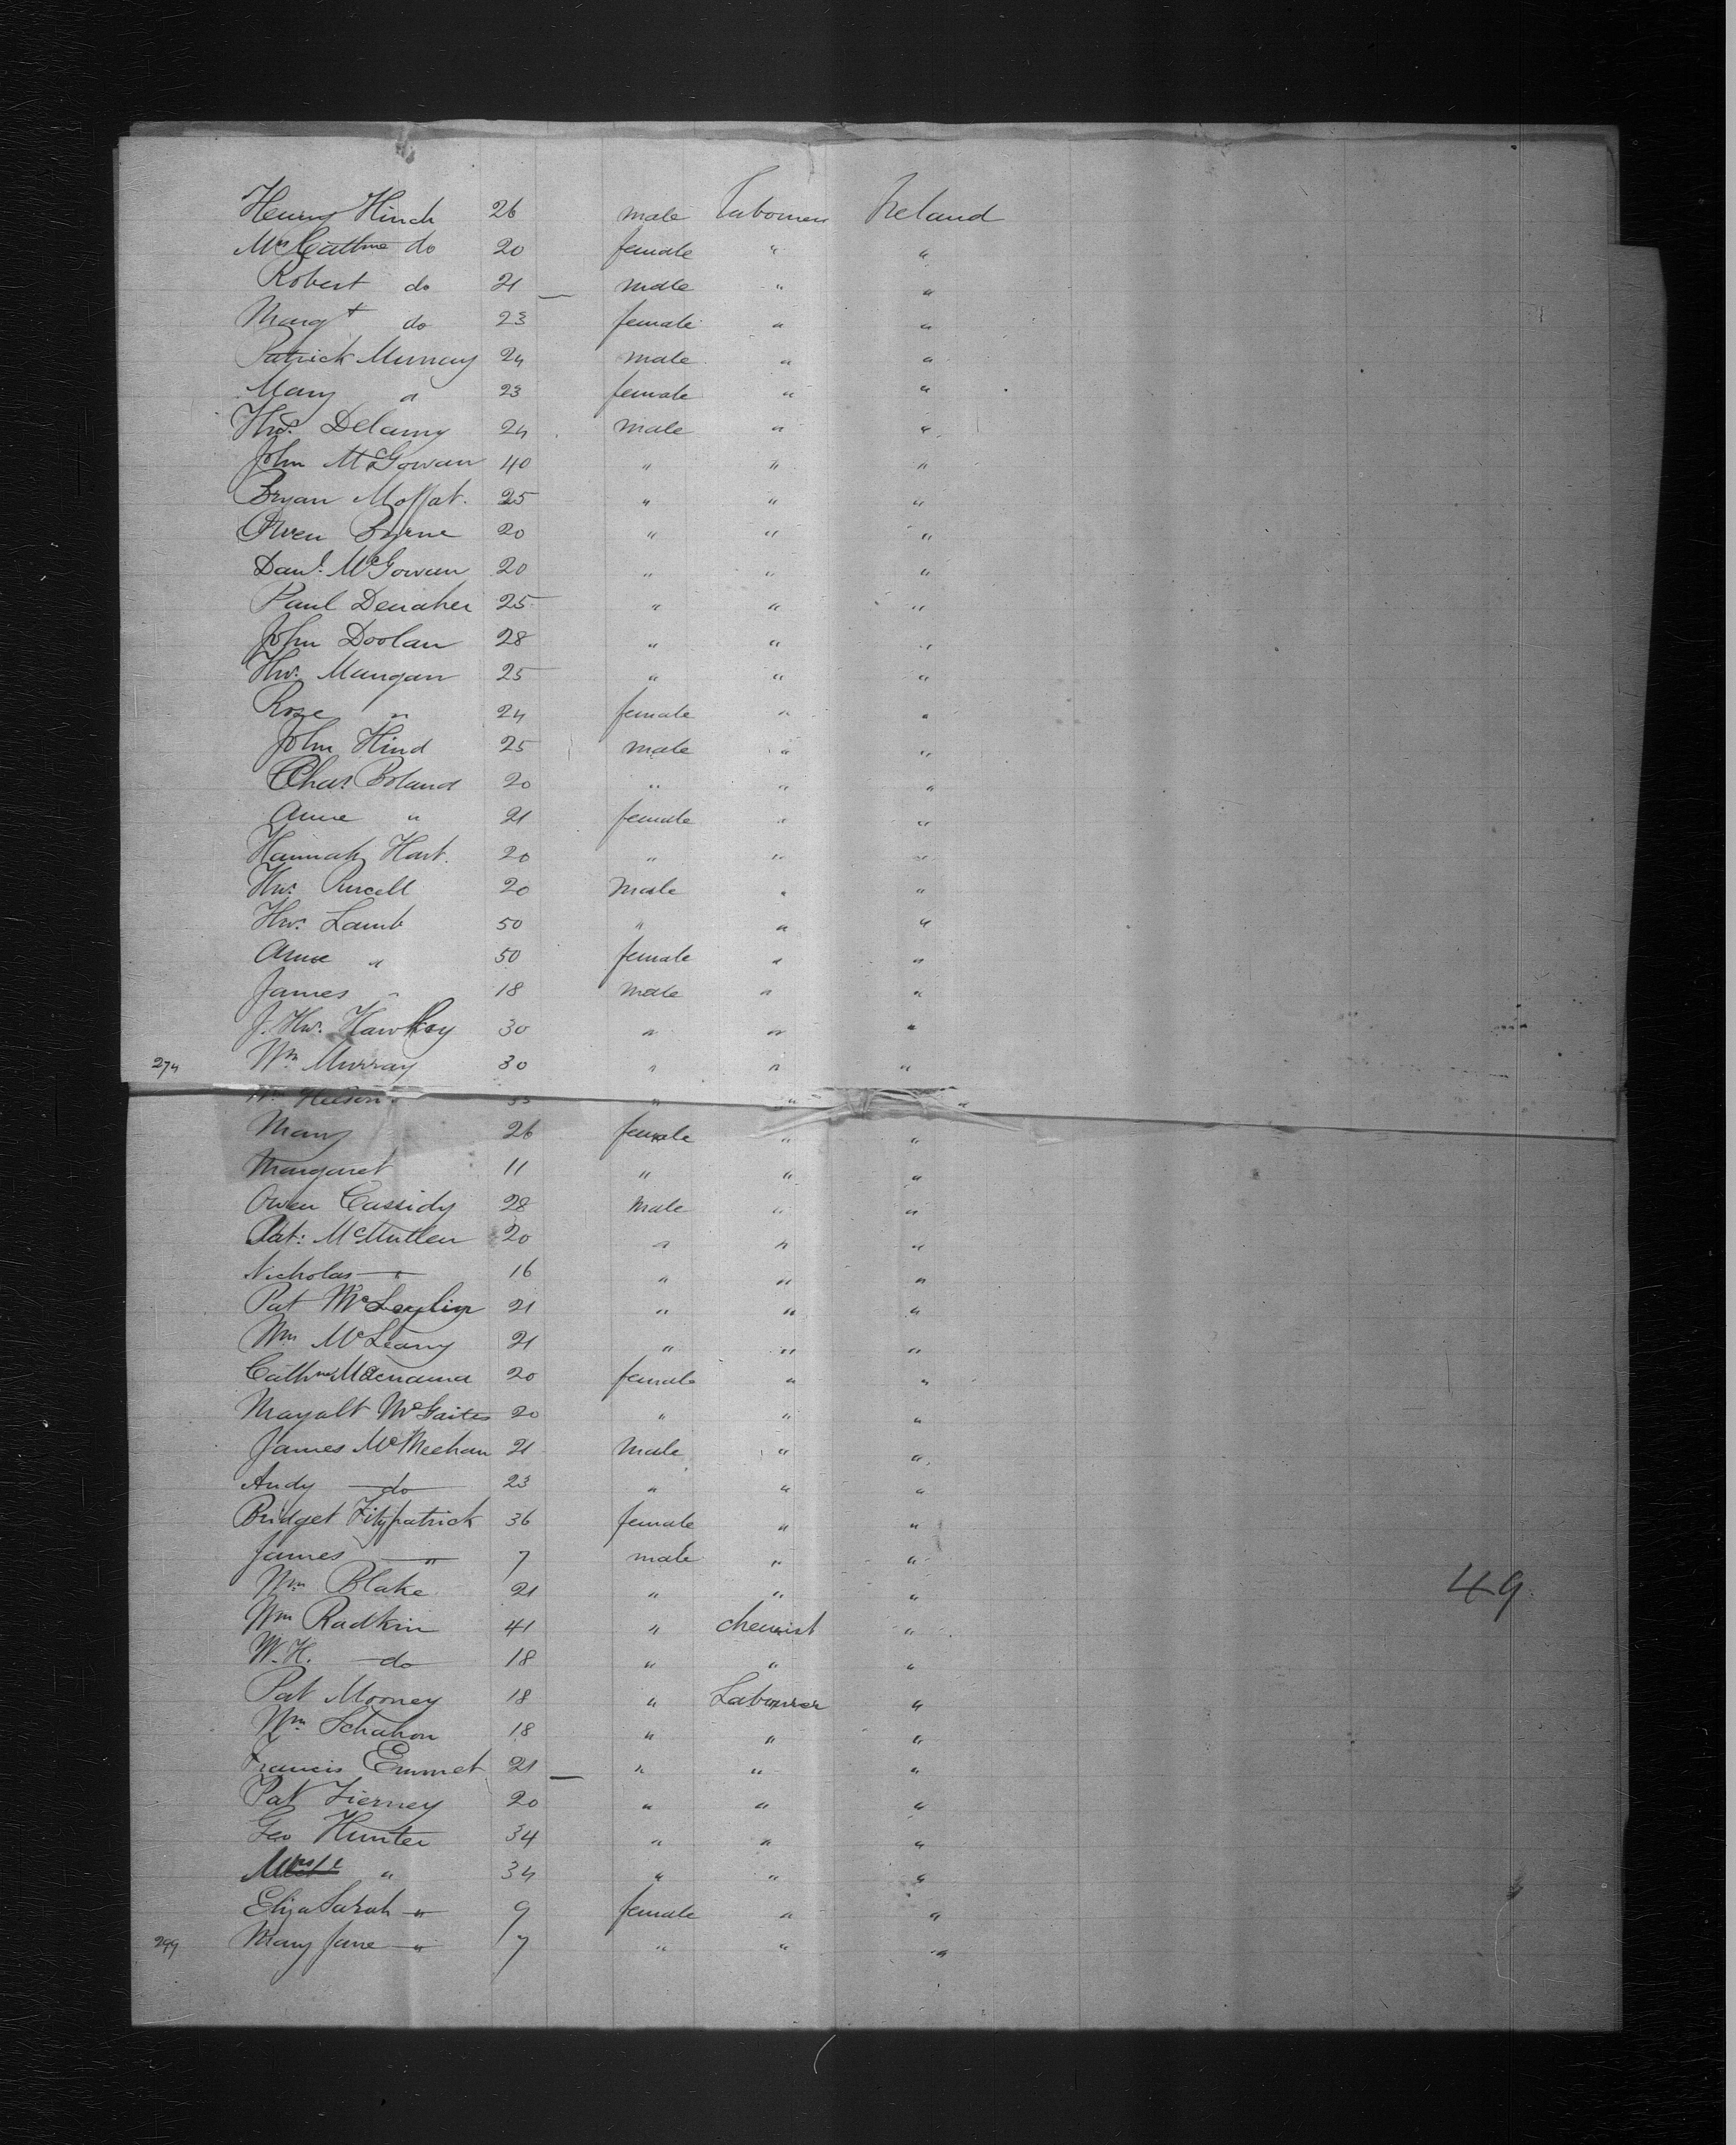 Henry Hinch 26 male Labourer Ireland
Mrs Cathne do 20 female " "
Robert do 21 male " "
Margt do 23 female " "
Patrick Murray 24 male " "
Mary " 23 female " "
Thos. Delamy 24 male " "
John McGowan 40 " " "
Bryan Moffat. 25 " " "
Owen Byrne 20 " " "
Danl. McGowan 20 " " "
Paul Denaher 25 " " "
John Doolan 28 " " "
Thos. Mangan 25 " " "
Rose " 24 female " "
John Hind 25 male " "
Chas Boland 20 " " "
Anne " 21 female " "
Hannah Hart. 20 " " "
Thos. Purcell 20 Male " "
Thos. Lamb 50 " " "
Anne " 50 female " "
James " 18 male " "
J. Thos. 30 " " "
274 Wm Murray 30 " " "
" " "
Mary 26 female " "
Margaret 11 " " "
Owen Cassidy 28 Male " "
Pat: McMullen 20 " " "
Nicholas " 16 " " "
Pat 21 " " "
Wm McLeany 21 " " "
Cathne Macnama 20 female " "
20 " " "
James McMeehan 21 Male " "
Andy do 23 " " "
Bridget Fitzpatrick 36 female " "
James " 7 male " "
Wm Blake 21 " " "
49
Wm Radkin 41 " chemist "
W. H. do 18 " " "
Pat Mooney 18 " Labourer "
Wm Schahon 18 " " "
Francis Emmet 21 " " "
Pat Tierney 20 " " "
Geo Hunter 34 " " "
" 34 " " "
Eliza Sarah " 9 female " "
299 Mary Jane " 7 " " "